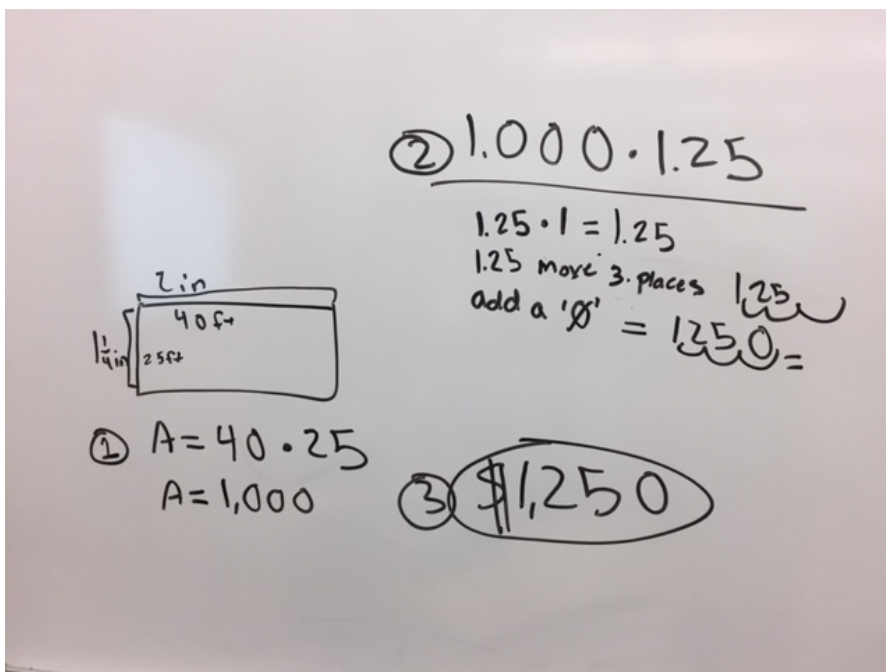 2 in
40 ft
1 1/4 in
25ft
① A = 40 · 25
A = 1,000
② 1.000 · 1.25
1.25 · 1 = 1.25
1.25 move 3. places 1.25
add a '0' = 1250 =
③ $1,250